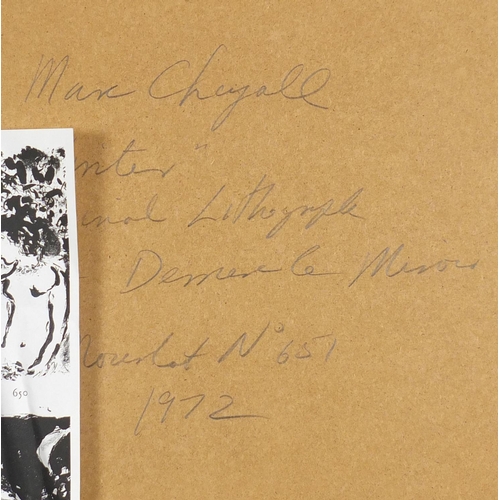 Marc Chagall
nter"
inal Lithograph
Derriere le Miroir
Mourlot Nº 651
1972
650